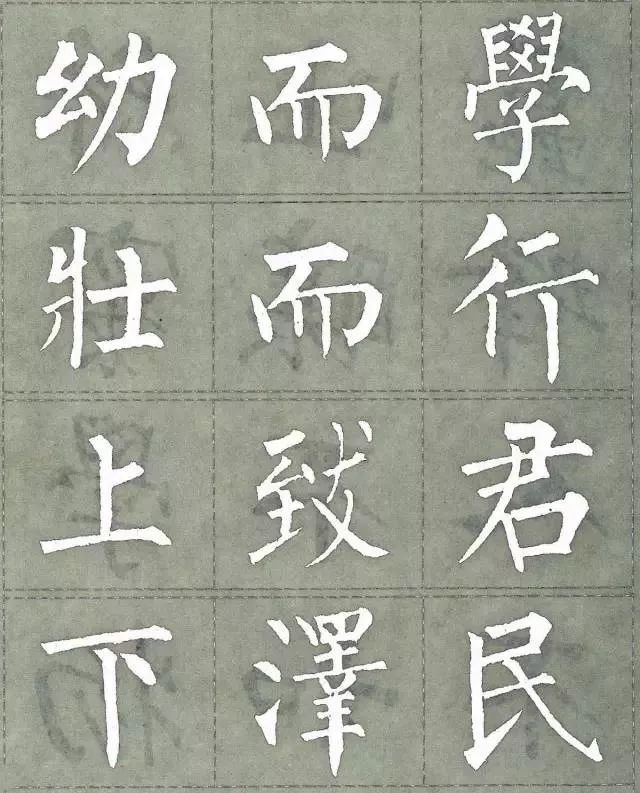 幼而學
壯而行
上致君
下澤民